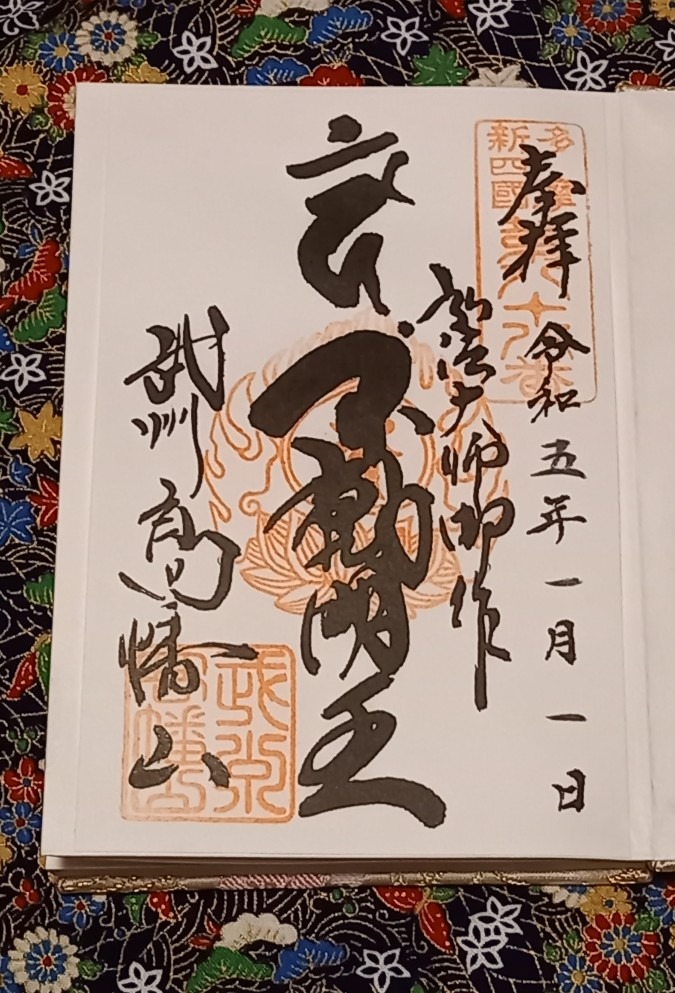 奉拝 令和五年一月一日
多摩
新四國
第八十八番
弘法大師御作
不動明王
武州 高幡山